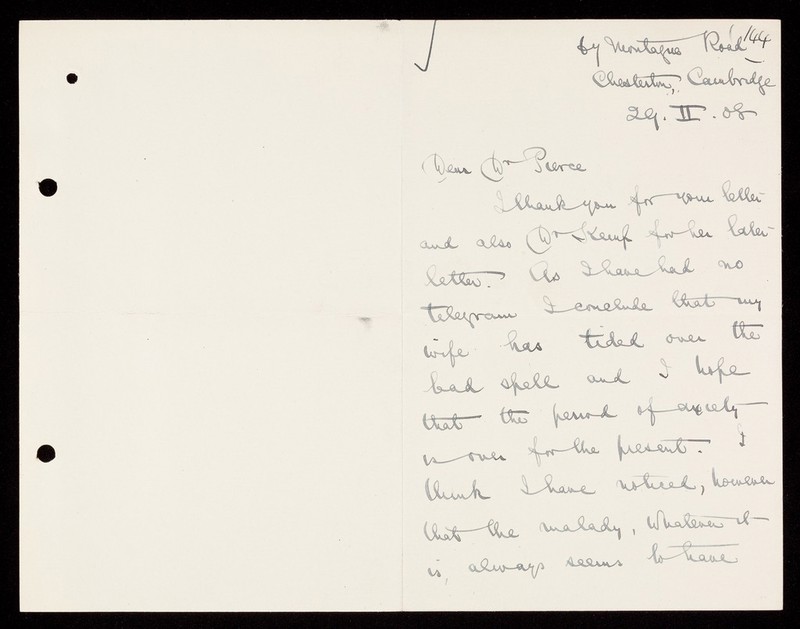 144
67 Montague Road
Chesterton, Cambridge
29. II. 08
Dear Dr Pierce
I thank you for your letter
and also Dr Kemp for her later
letter. As I have had no
telegram I conclude that my
wife has tided over the
bad spell and I hope
that the period of anxiety
is over for the present. I
think I have noticed, however
that the malady, whatever it
is, always seems to have